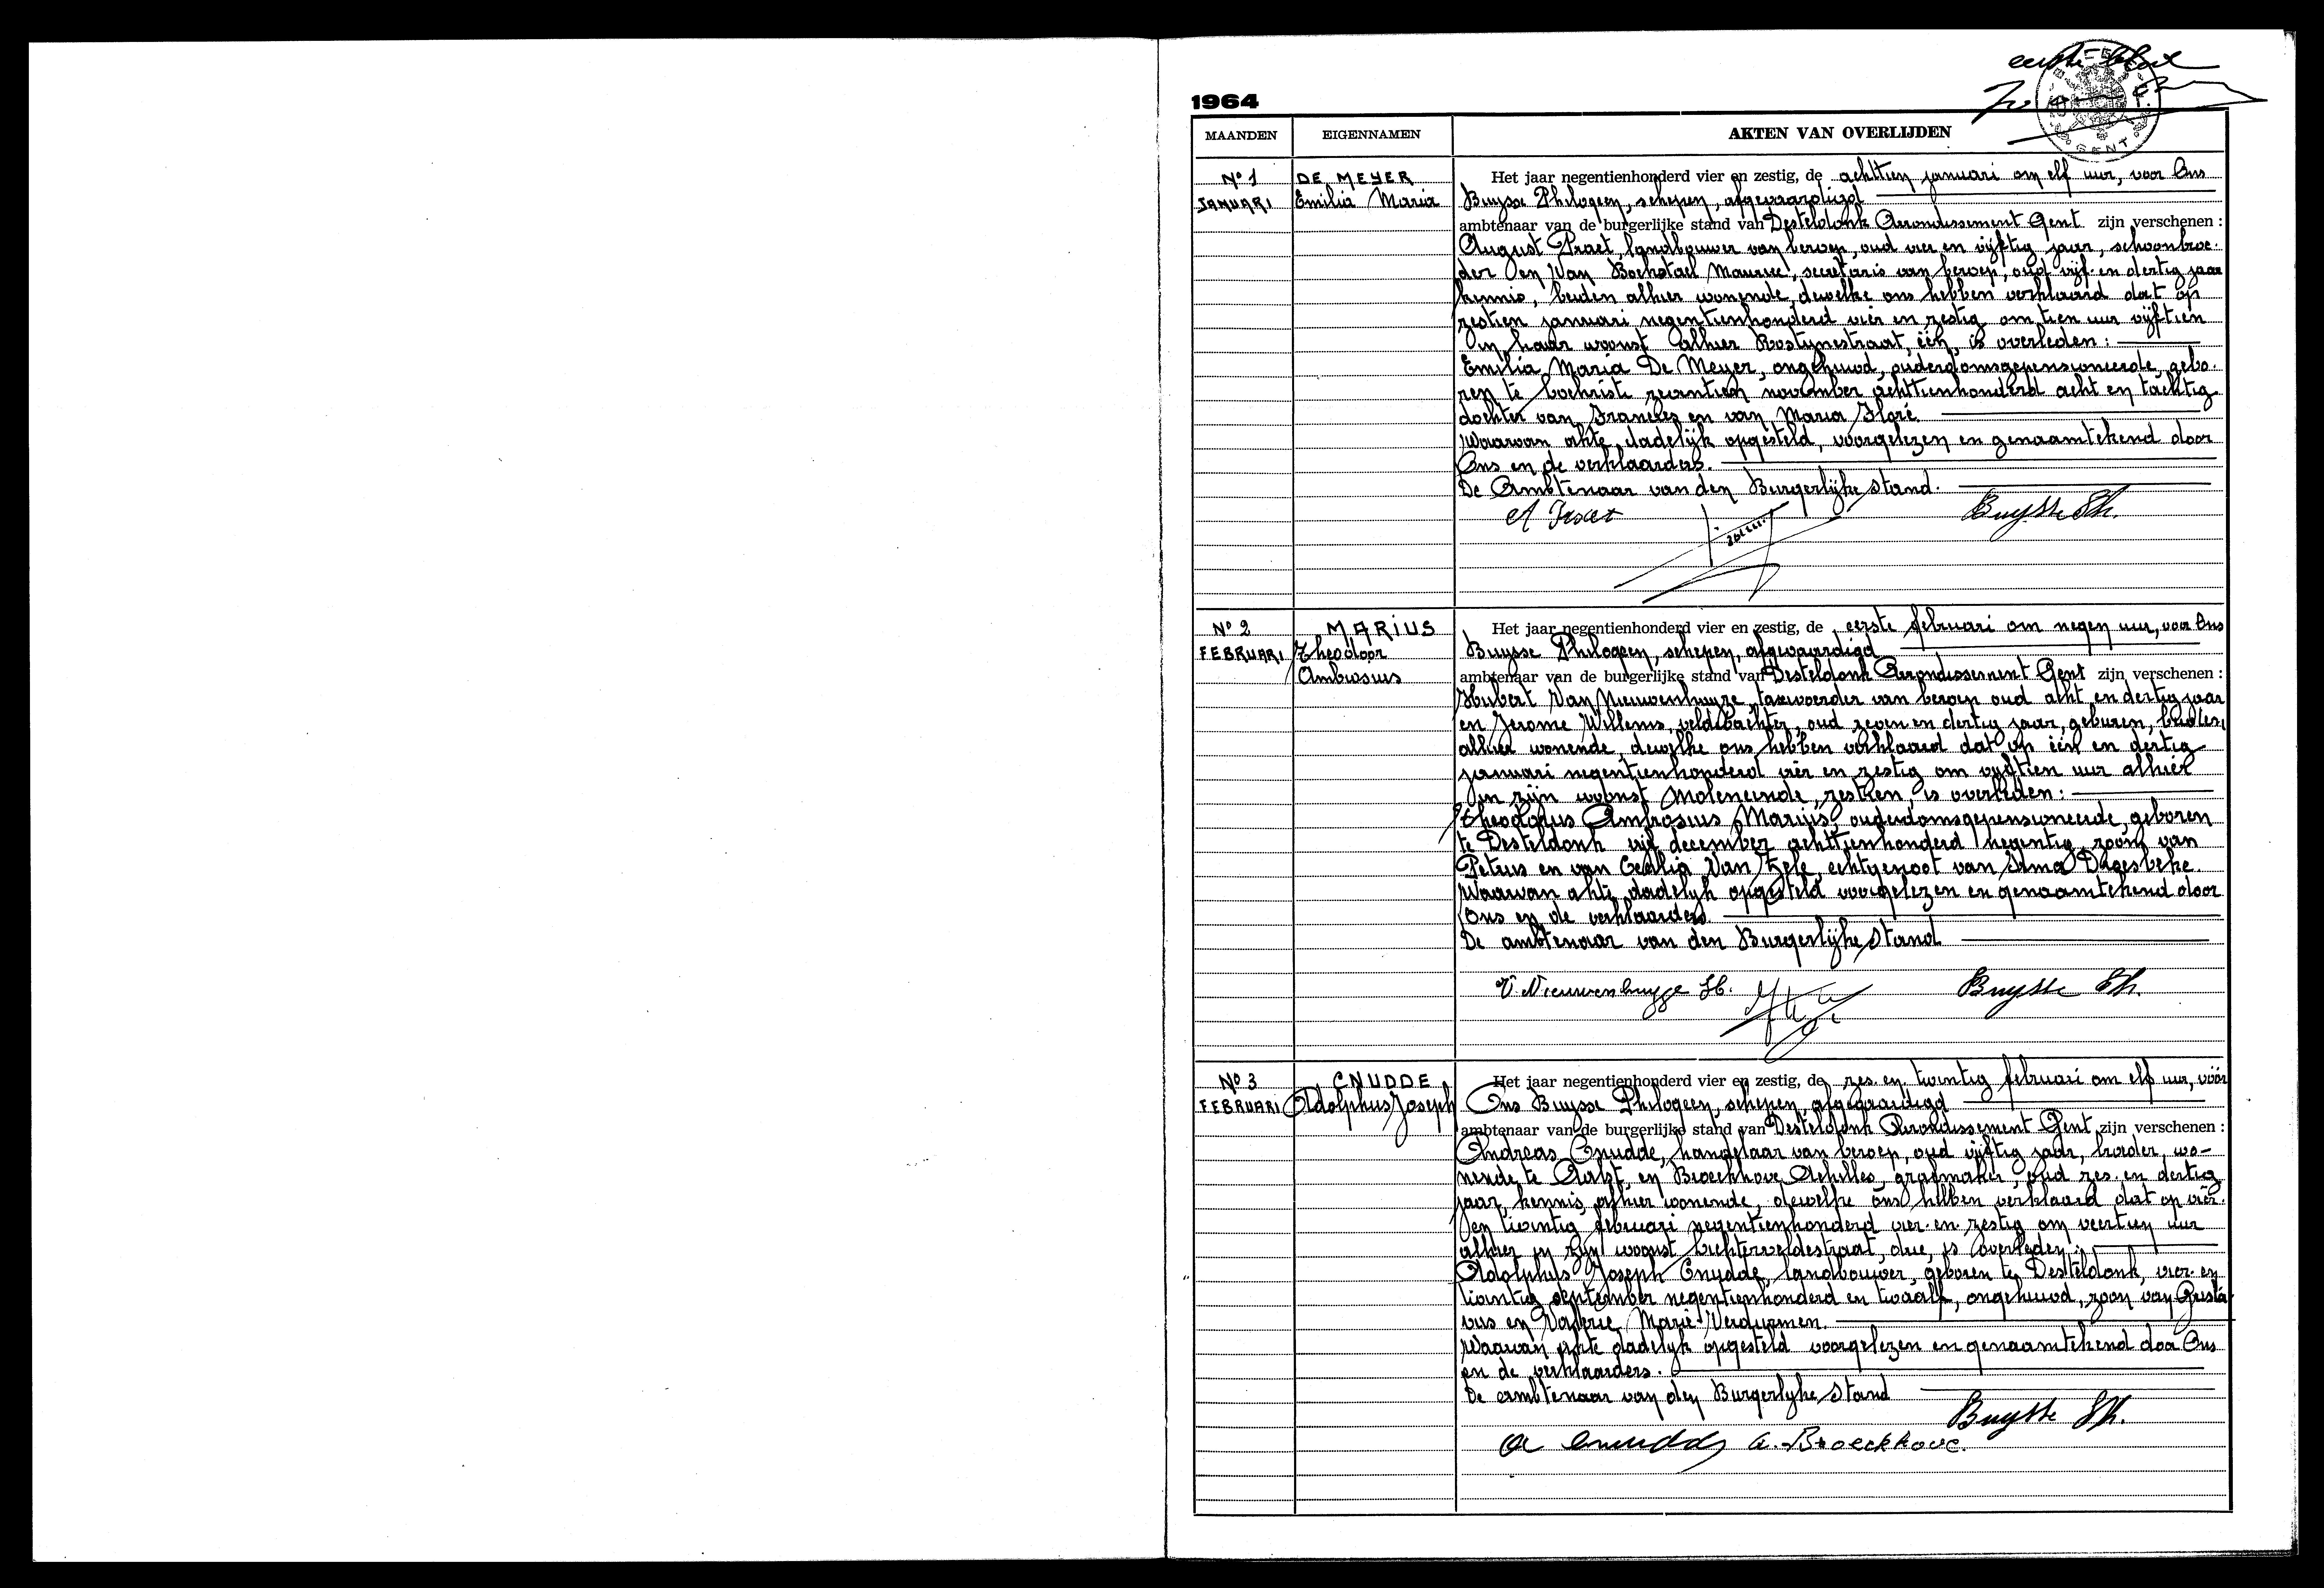 eerste blad
1964
GENT
MAANDEN EIGENNAMEN AKTEN VAN OVERLIJDEN
No 1 DE MEYER Het jaar negentienhonderd vier en zestig, de achttien januari om elf uur, voor Ons
JANUARI Emilia Maria Buysse Philogeen, schepen, afgevaardigd
ambtenaar van de burgerlijke stand van Desteldonk Arrondissement Gent zijn verschenen :
August Praet, landbouwer van beroep, oud vier en vijftig jaar, schoonbroe-
der en Van Bockstael Maurice, secretaris van beroep, oud vijf en dertig jaar
kennis, beiden alhier wonende, dewelke ons hebben verklaard dat op
zestien januari negentienhonderd vier en zestig om tien uur vijftien
in haar woonst alhier Rostynestraat, één, is overleden :
Emilia Maria De Meyer, ongehuwd, ouderdomsgepensioneerde, gebo-
ren te Lochristi twintien november achttienhonderd acht en tachtig
dochter van Francies en van Maria Floré.
Waarvan akte dadelijk opgesteld, voorgelezen en genaamtekend door
Ons en de verklaarders.
De Ambtenaar van den Burgerlijke stand.
A Praet Buysse Ph.
No 2 MARIUS Het jaar negentienhonderd vier en zestig, de eerste februari om negen uur, voor Ons
FEBRUARI Theodoor Buysse Philogeen, schepen, afgevaardigd
Ambrosius ambtenaar van de burgerlijke stand van Desteldonk Arrondissement Gent zijn verschenen :
Hubert Van Nieuwenhuyze, taxivoerder van beroep oud acht en dertig jaar
en Jerome Willems, veldwachter, oud zeven en dertig jaar, geburen, beiden
alhier wonende, dewelke ons hebben verklaard dat op één en dertig
januari negentienhonderd vier en zestig om vijftien uur alhier
in zijn woonst Moleneinde, zestien, is overleden :
Theodorus Ambrosius Marius, ouderdomsgepensioneerde, geboren
te Desteldonk vijf december achttienhonderd negentig, zoon van
Petrus en van Cecilia Van Hefe, echtgenoot van Irma Dhaesbeke.
Waarvan akte dadelijk opgesteld voorgelezen en genaamtekend door
Ons en de verklaarders.
De ambtenaar van den Burgerlijke stand
V. Nieuwenhuyze H. Buysse Ph.
No 3 CNUDDE Het jaar negentienhonderd vier en zestig, de zes en twintig februari om elf uur, vóór
FEBRUARI Adolphus Joseph Ons Buysse Philogeen, schepen, afgevaardigd
ambtenaar van de burgerlijke stand van Desteldonk Arrondissement Gent zijn verschenen :
Andreas Cnudde, handelaar van beroep, oud vijftig jaar, broeder, wo-
nende te Aalst, en Broeckhove Achilles, grafmaker, oud zes en dertig
jaar, kennis, alhier wonende, dewelke ons hebben verklaard dat op vier-
en twintig februari negentienhonderd vier en zestig om veertien uur
alhier in zijn woonst Lichterveldestraat, drie, is overleden :
Adolphus Joseph Cnudde, landbouwer, geboren te Desteldonk, vier en
twintig september negentienhonderd en twaalf, ongehuwd, zoon van Gusta
vus en Valerie Marie Verdurmen.
Waarvan akte dadelijk opgesteld voorgelezen en genaamtekend door Ons
en de verklaarders.
De ambtenaar van den Burgerlyke stand
Buysse Ph.
A Cnudde A. Broeckhove.